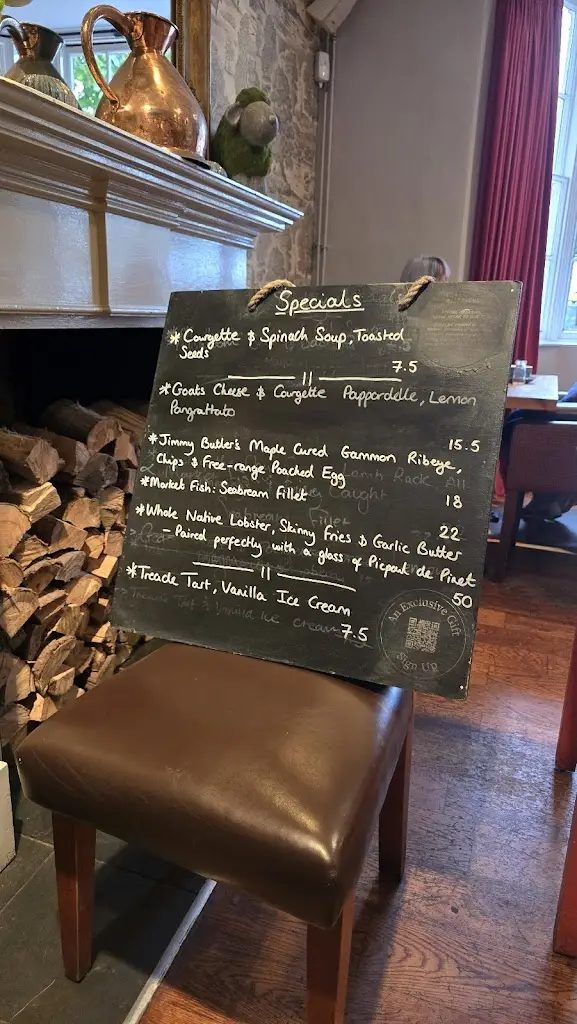 Specials
* Courgette & Spinach Soup, Toasted
Seeds
7.5
* Goats Cheese & Courgette Pappardelle, Lemon
Pangrattato
15.5
* Jimmy Butler's Maple Cured Gammon Ribeye,
Chips & Free-range Poached Egg
18
* Market Fish: Seabream Fillet
22
* Whole Native Lobster, Skinny Fries & Garlic Butter
- Paired perfectly with a glass of Picpoul de Pinet
50
* Treacle Tart, Vanilla Ice Cream
7.5
An Exclusive Gift
Sign UP